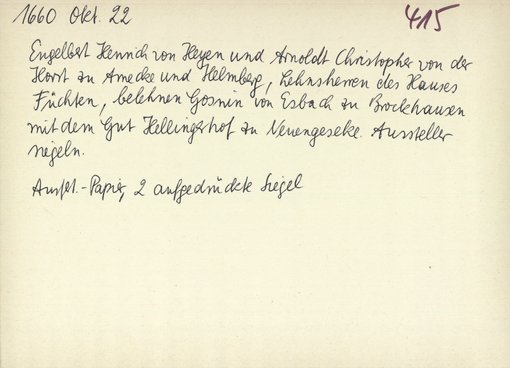 1660 Okt. 22
415
Engelbert Henrich von Heyen und Arnoldt Christopher von der
Horst zu Amecke und Helmberg, Lehnsherren des Hauses
Füchten, belehnen Goswin von Esbach zu Brockhausen
mit dem Gut Hellingshof zu Neuengeseke. Aussteller
siegeln.
Ausf.-Papier, 2 aufgedrückte Siegel